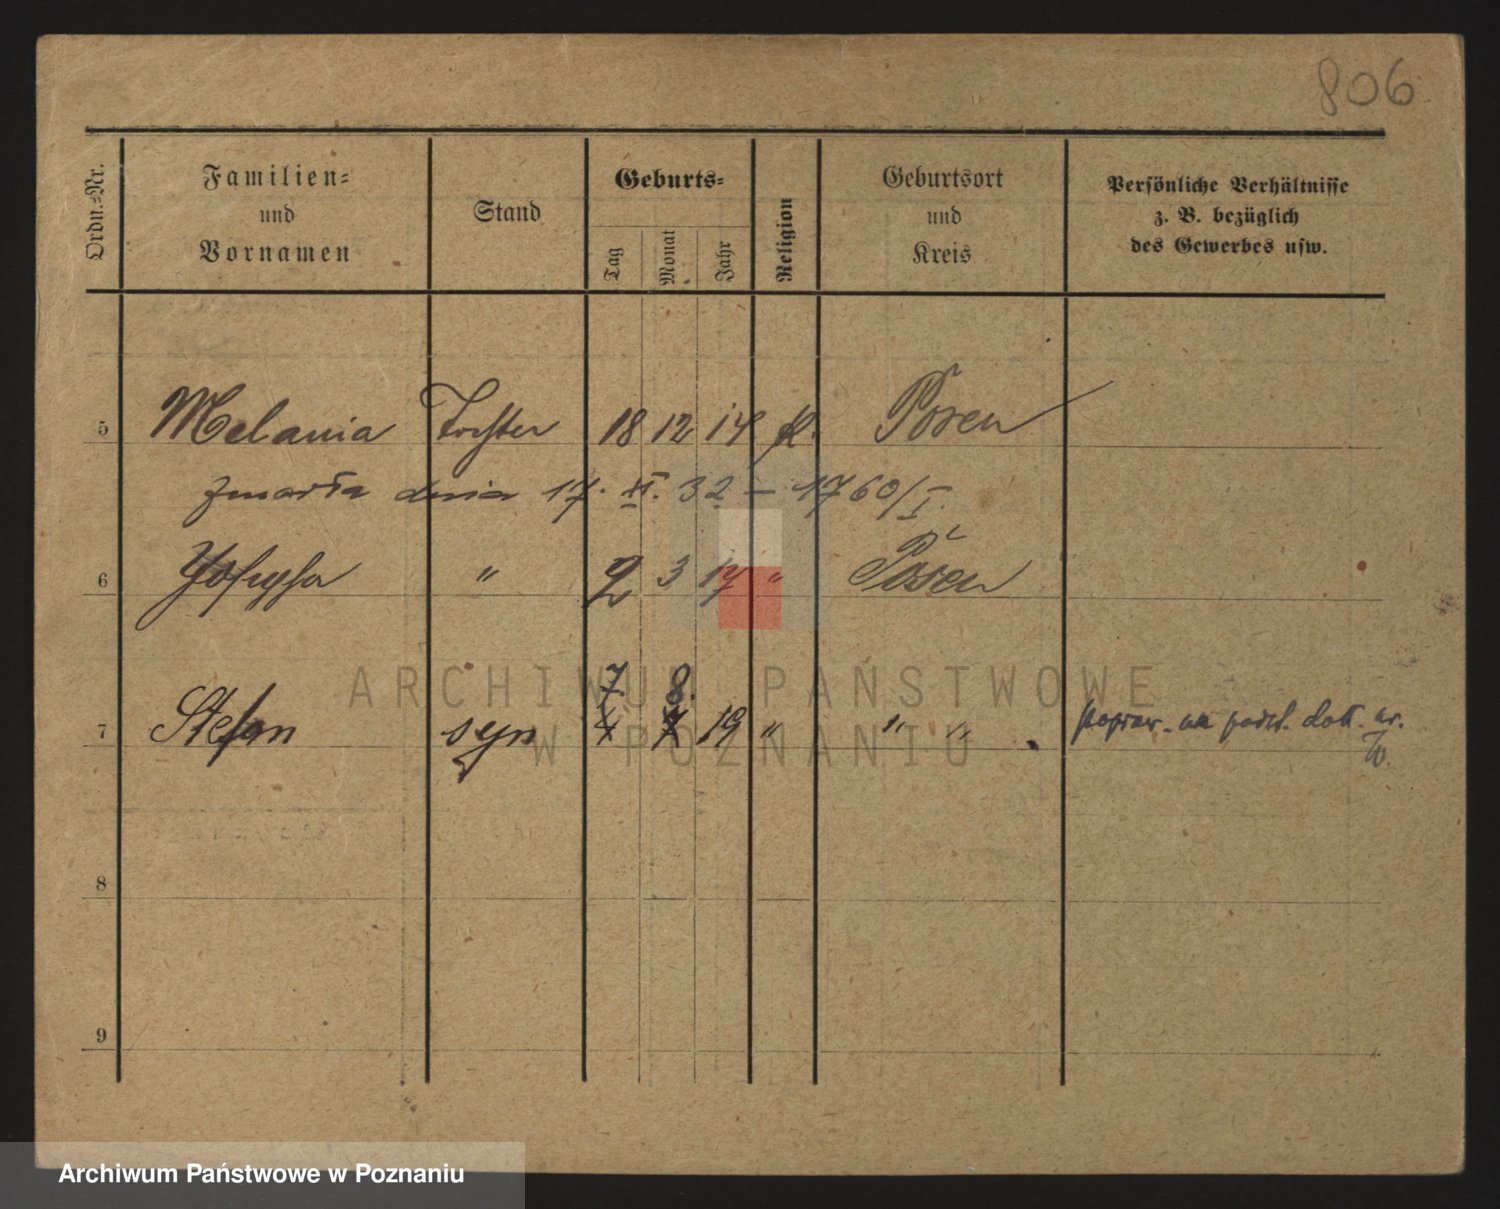 806
Ordn.=Nr.
Familien=
und
Vornamen
Stand
Geburts=
Tag
Monat
Jahr
Religion
Geburtsort
und
Kreis
Persönliche Verhältnisse
z. B. bezüglich
des Gewerbes usw.
5 Melania Tochter 18 12 14 k. Posen
zmarła dnia 17. XI. 32 – 1760/I.
6 " 2 3 17 " Posen
7. 8.
7 Stefan syn 4 7 19 " " "
popraw. na podst. dok. ur.
8
9
ARCHIWUM PAŃSTWOWE
W POZNANIU
Archiwum Państwowe w Poznaniu